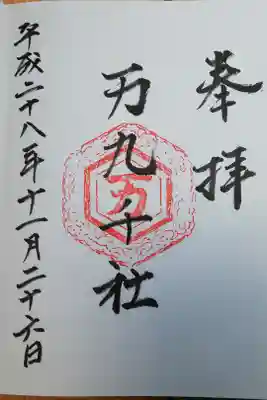 奉拝
万九千社
平成二十八年十一月二十六日